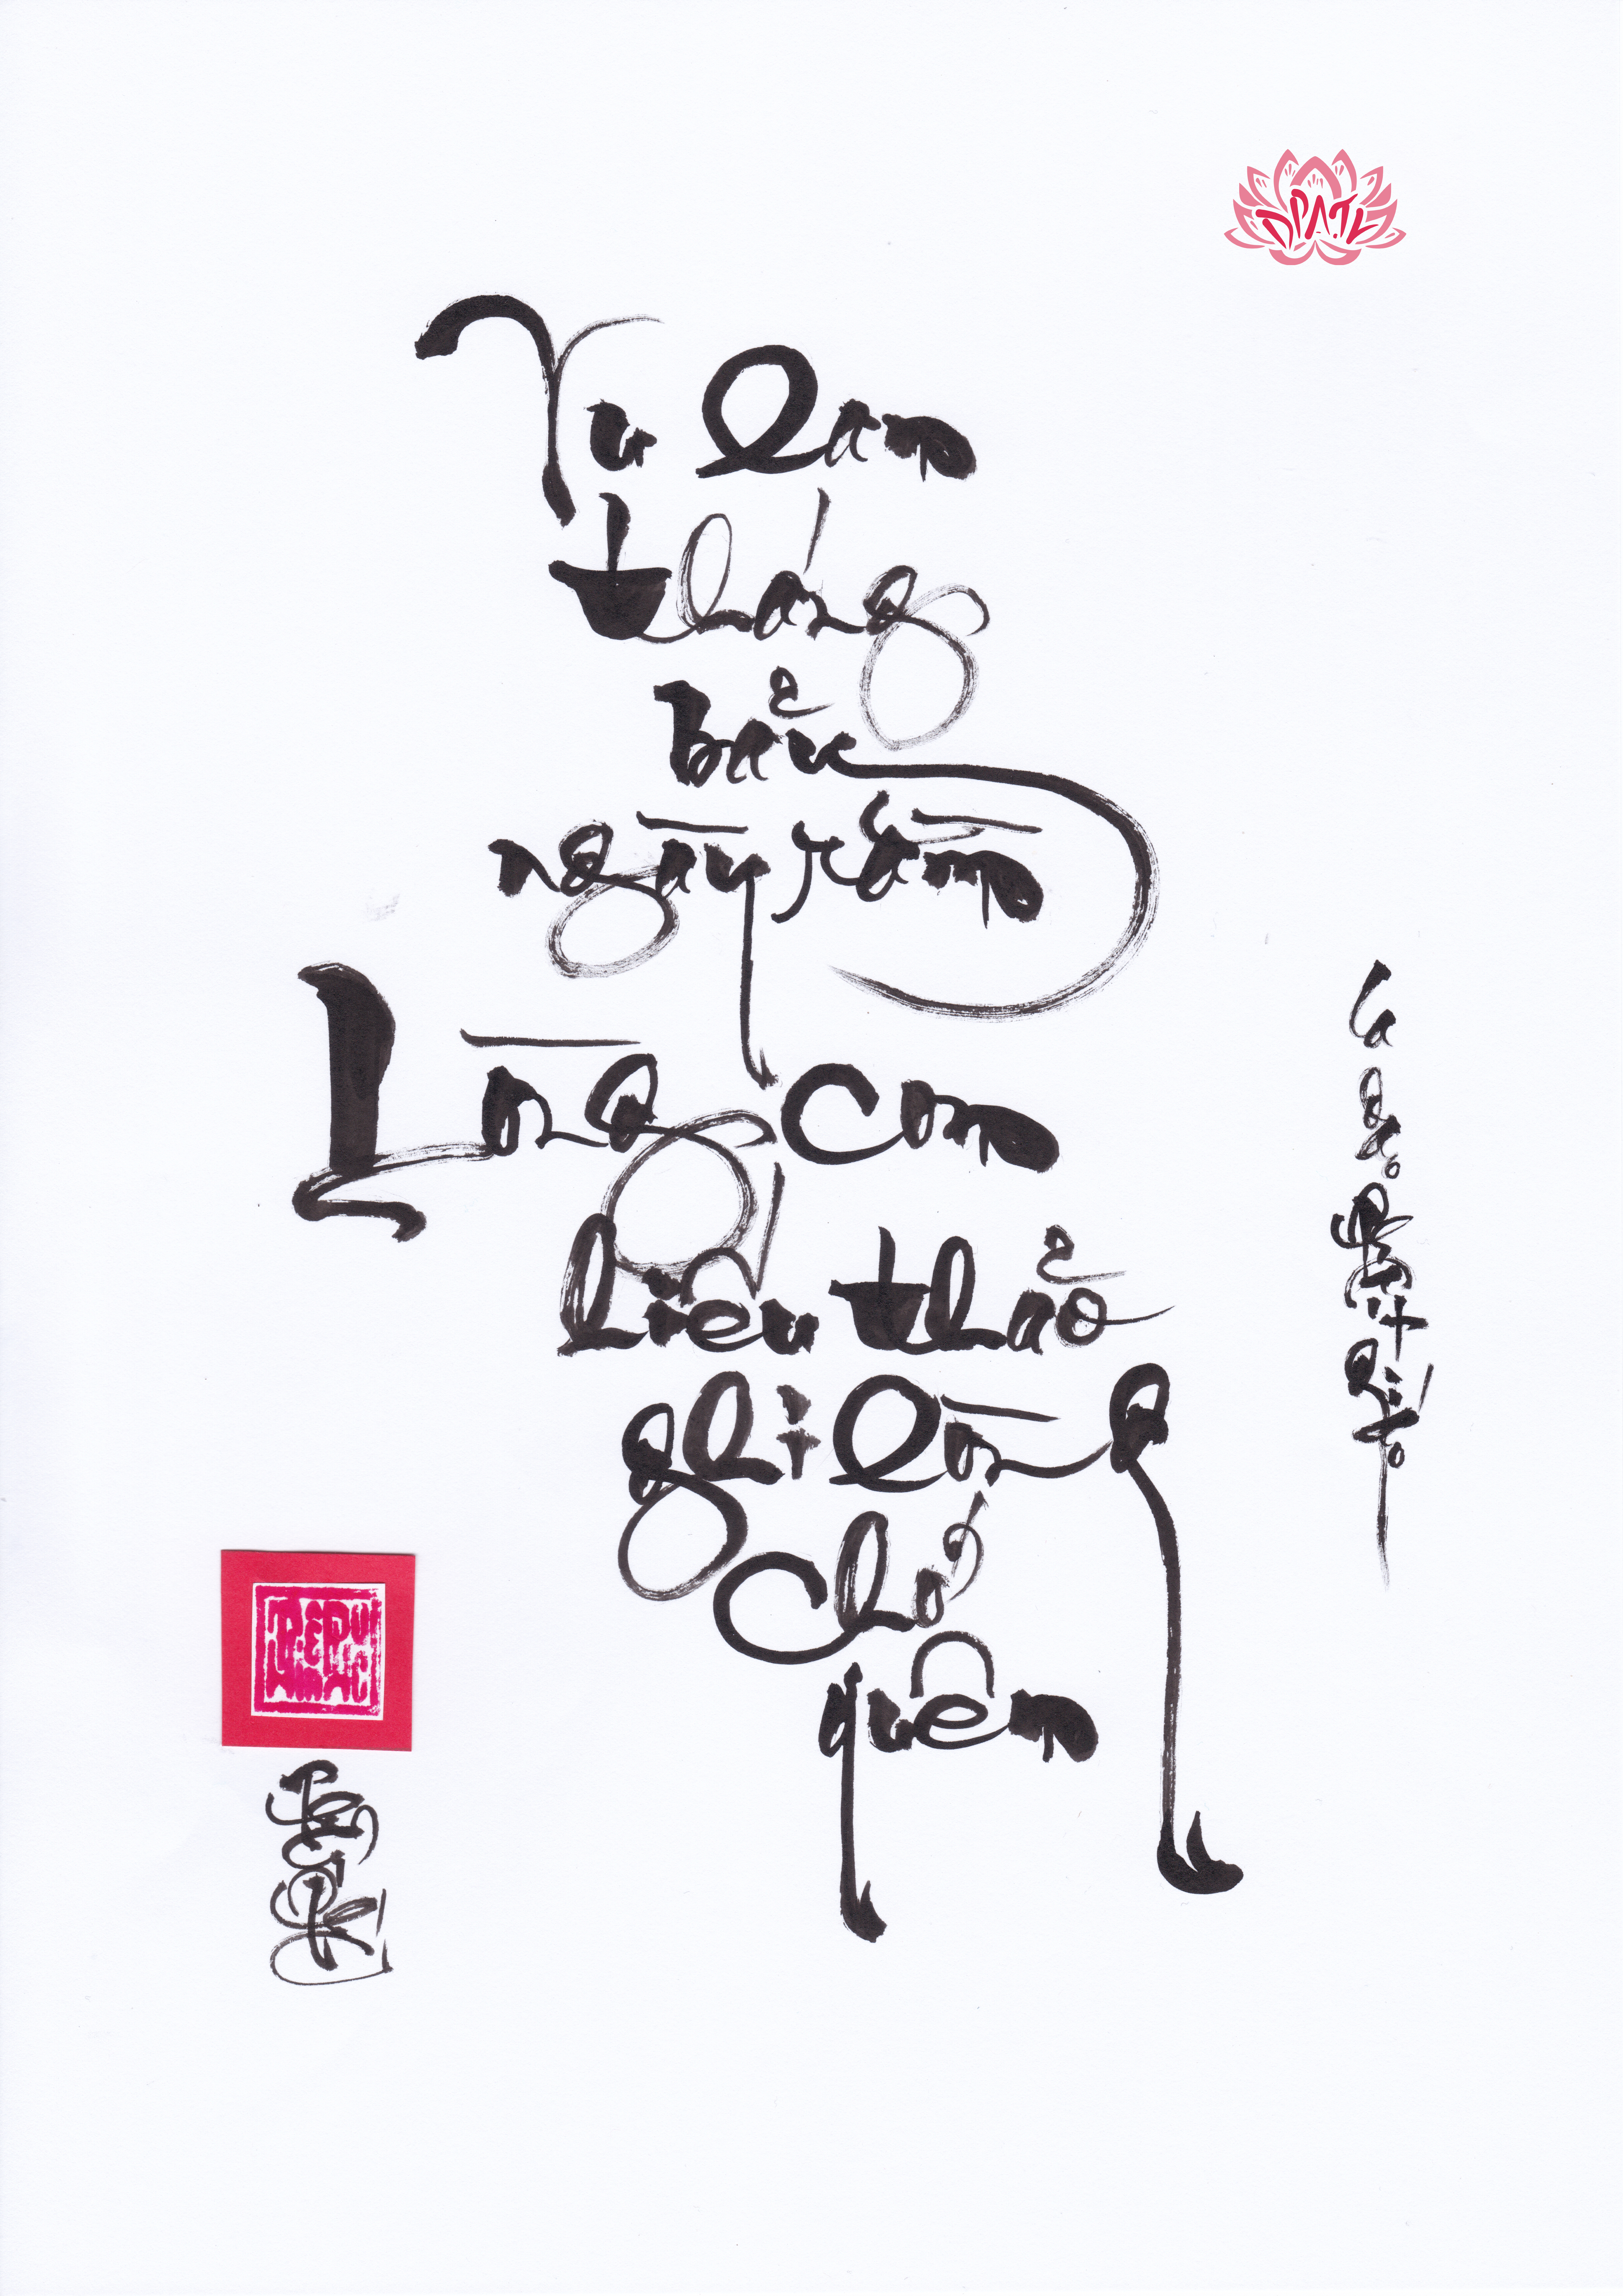 DPATL
Vu Lan
tháng
bảy
ngày rằm
Lòng con
hiếu thảo
ghi lòng
chớ
quên